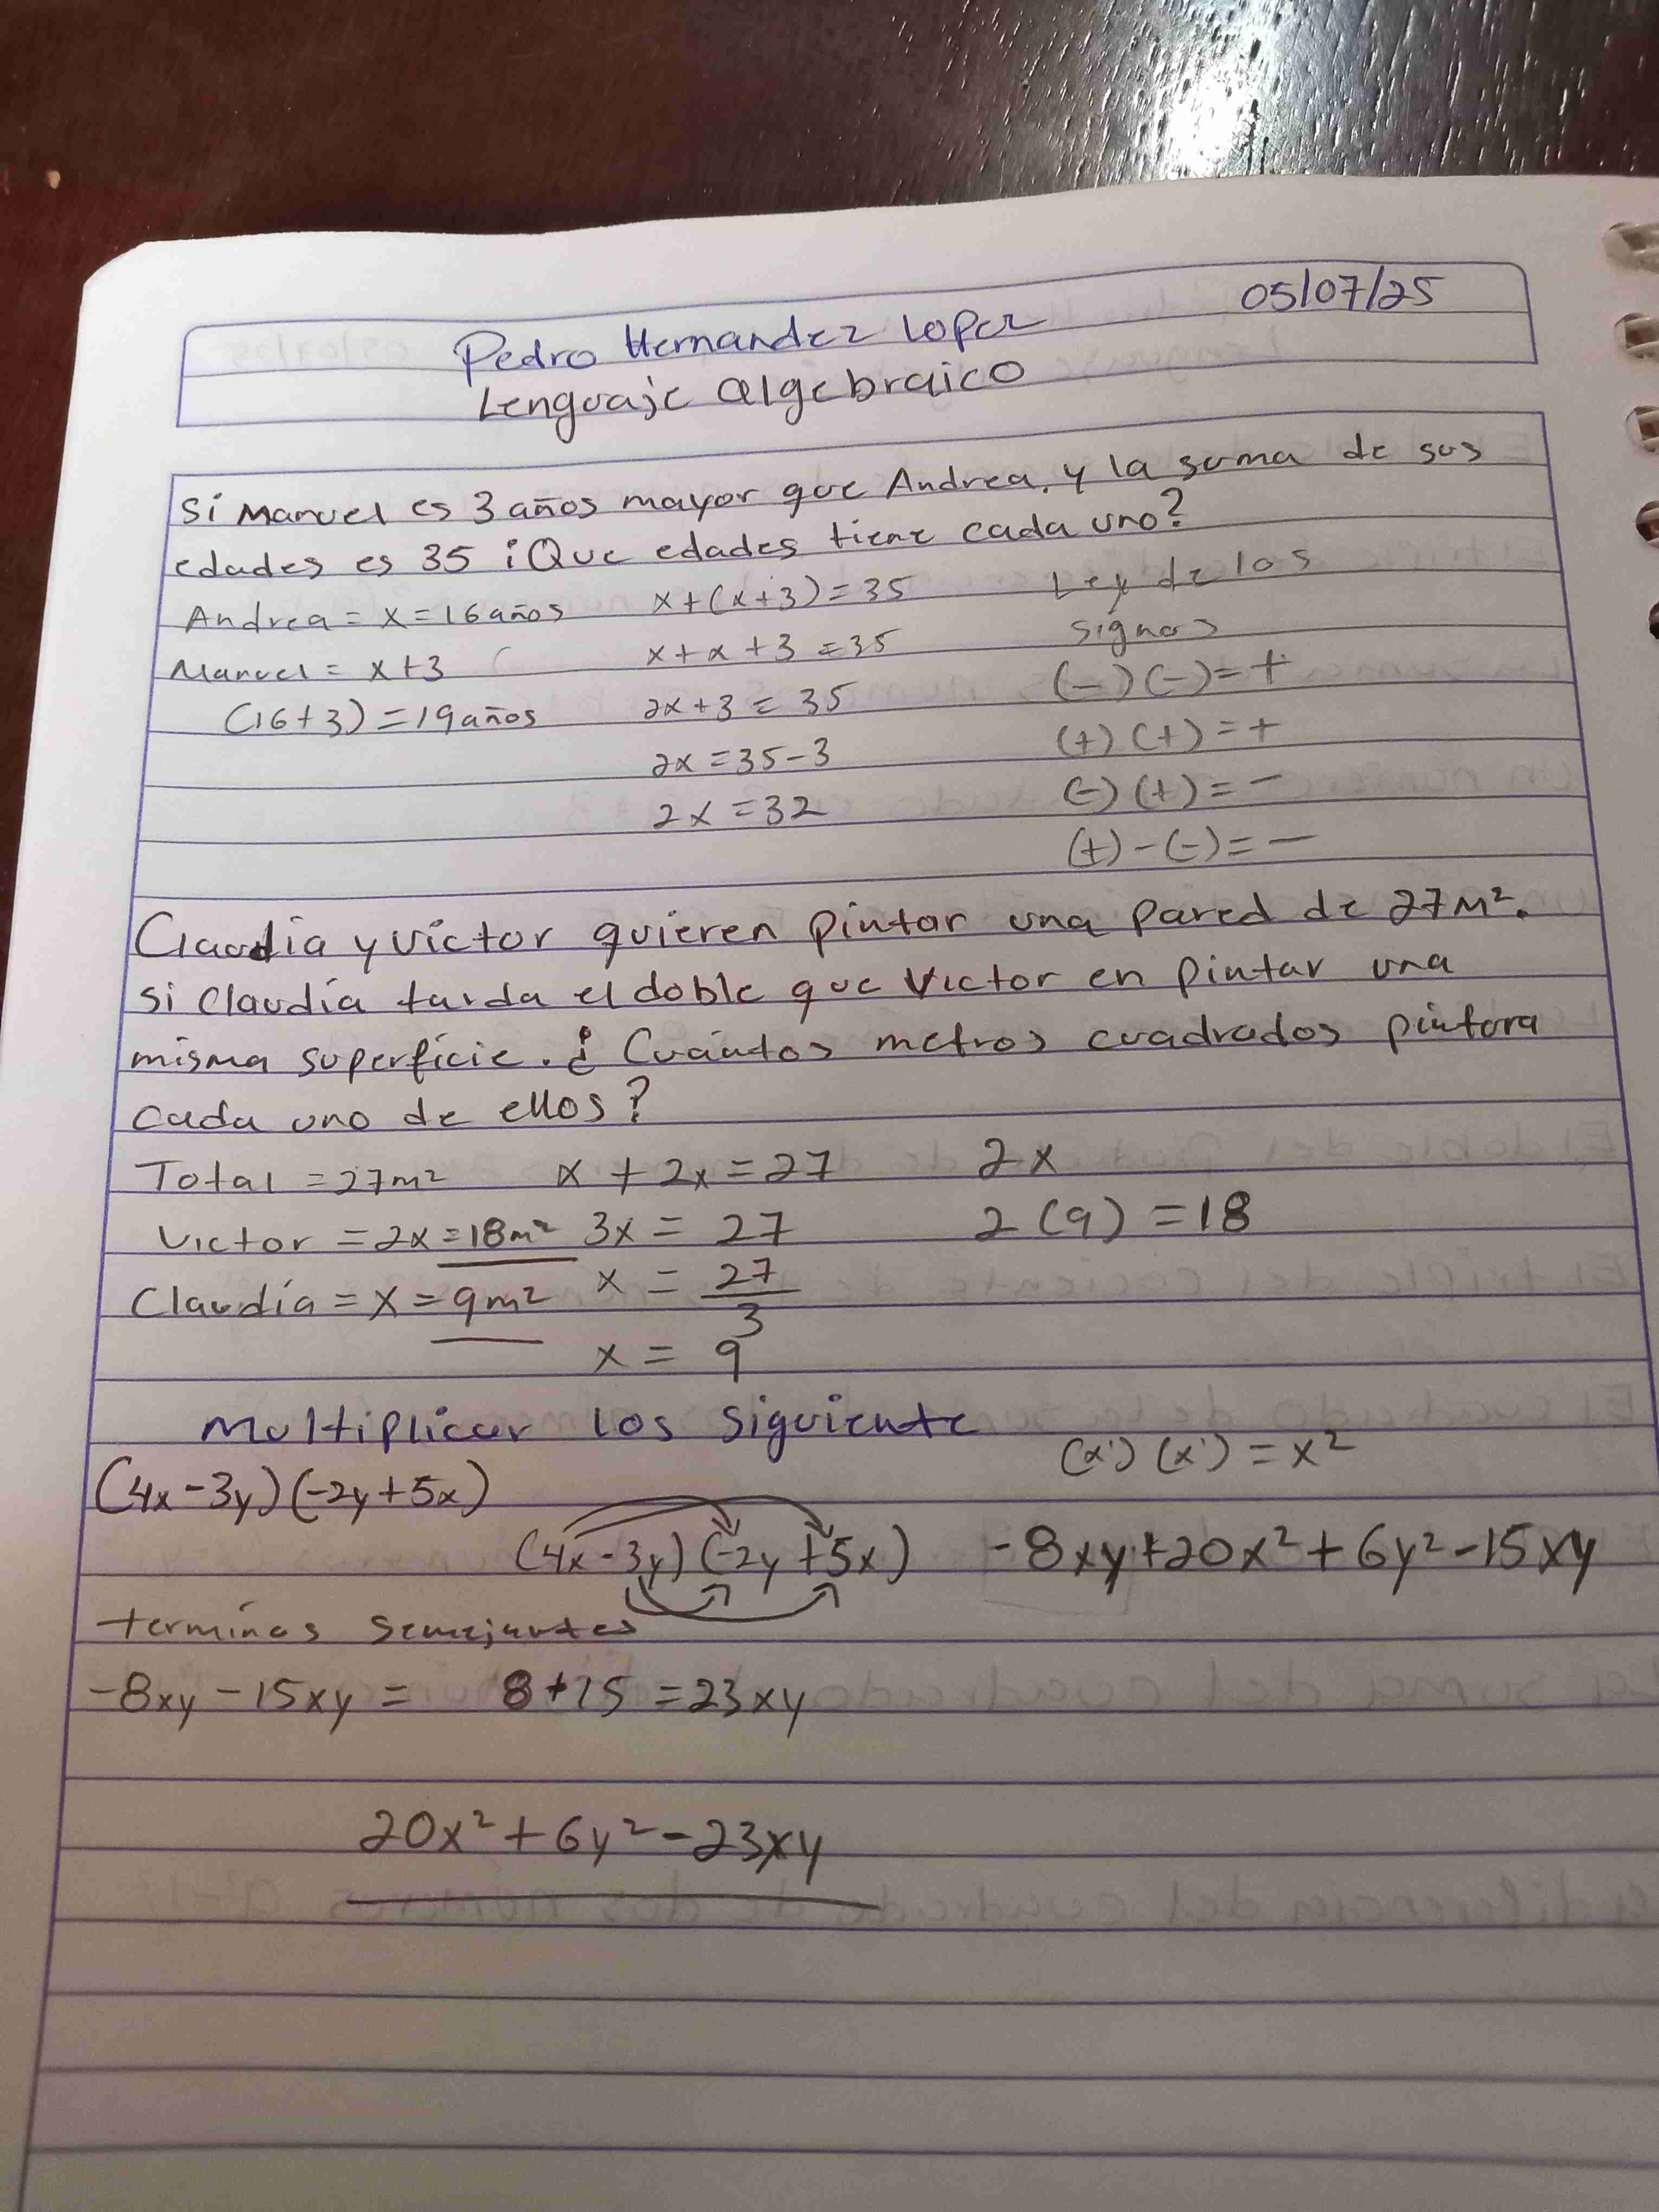 05/07/25
Pedro Hernandez Lopez
Lenguaje algebraico
Si Manuel es 3 años mayor que Andrea, y la suma de sus
edades es 35 ¡Que edades tiene cada uno?
Andrea = x = 16 años x+(x+3)=35 Ley de los
Manuel = x+3 x+x+3=35 signos
(16+3)=19 años 2x+3=35 (-)(-)=+
2x=35-3 (+)(+)=+
2x=32 (-)(+)=-
(+)-(-)=-
Claudia y victor quieren pintar una pared de 27m².
si Claudia tarda el doble que Victor en pintar una
misma superficie. ¿Cuántos metros cuadrados pintara
cada uno de ellos?
Total = 27m² x + 2x = 27 2x
Victor = 2x = 18m² 3x = 27 2(9)=18
Claudia = x = 9m² x = 27/3
x = 9
Multiplicar los siguiente
(4x-3y)(-2y+5x) (x)(x) = x²
(4x-3y)(-2y+5x) -8xy+20x²+6y²-15xy
terminos semejantes
-8xy-15xy = 8+15 = 23xy
20x²+6y²-23xy